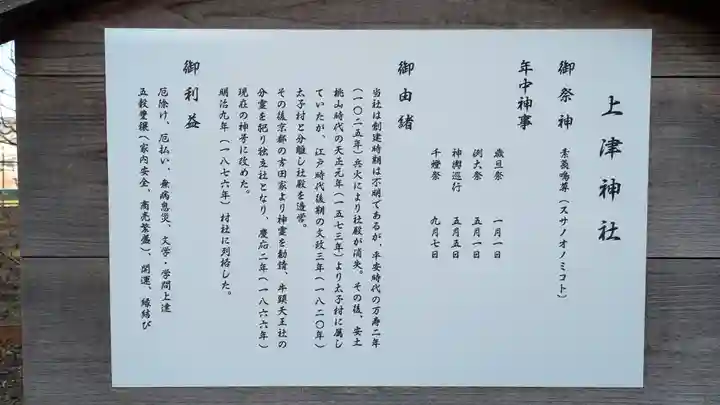 上津神社
御祭神 素戔嗚尊(スサノオノミコト)
年中神事
歳旦祭 一月一日
例大祭 五月一日
神輿巡行 五月五日
千燈祭 九月七日
御由緒
当社は創建時期は不明であるが、平安時代の万寿二年
(一〇二五年)兵火により社殿が消失。その後、安土
桃山時代の天正元年(一五七三年)より太子村に属し
ていたが、江戸時代後期の文政三年(一八二〇年)
太子村と分離し社殿を造営。
その後京都の吉田家より神霊を勧情、牛頭天王社の
分霊を祀り独立社となり、慶応二年(一八六六年)
現在の神号に改めた。
明治九年(一八七六年)村社に列格した。
御利益
厄除け、厄払い、無病息災、文学・学問上達
五穀豊穣(家内安全、商売繁盛)、開運、縁結び